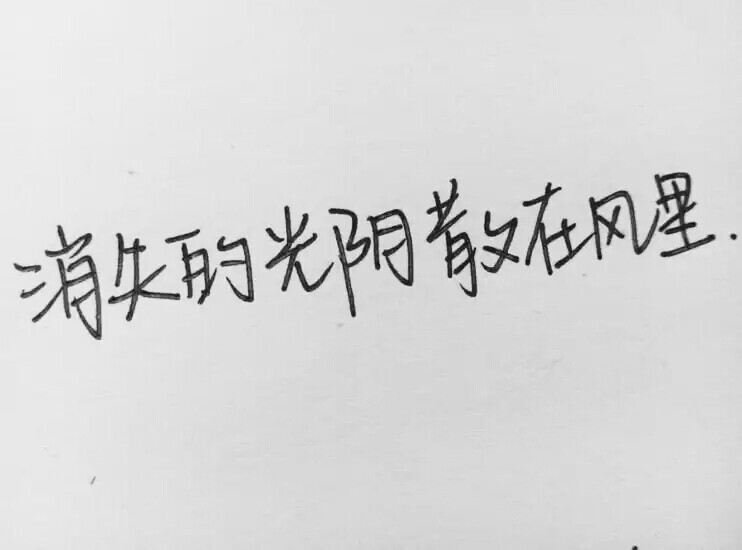 消失的光阴散在风里.